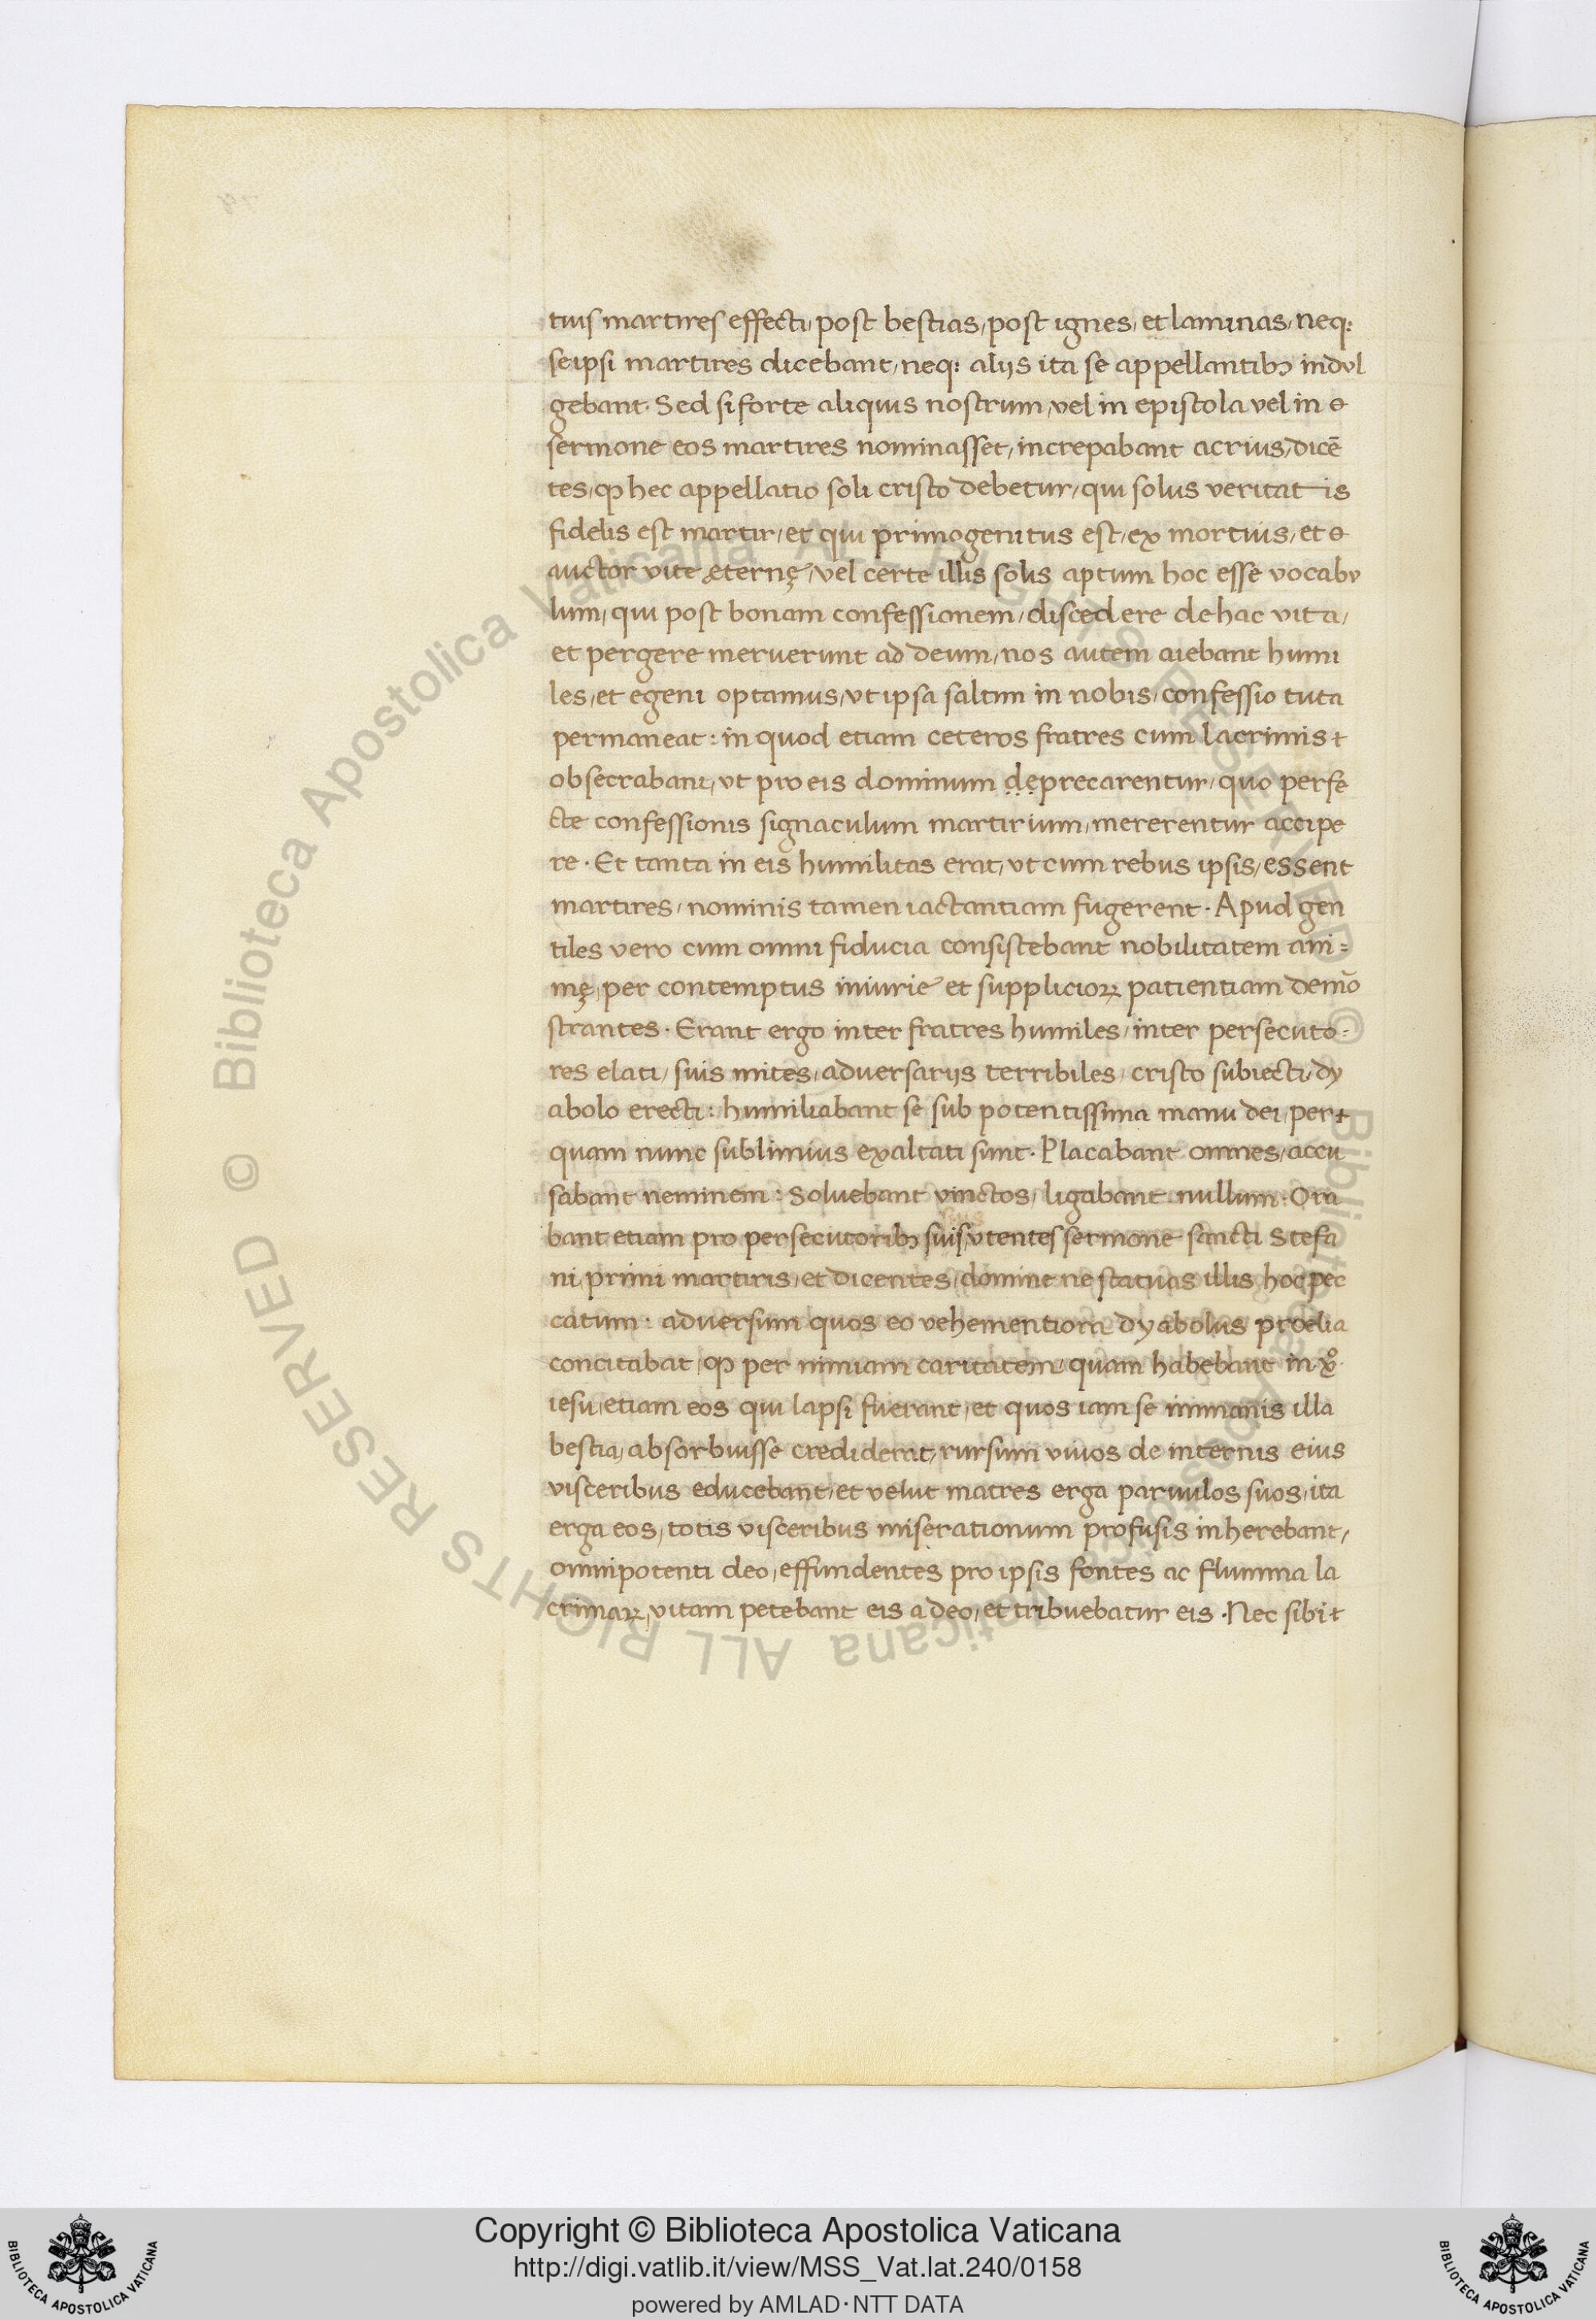 tius martires effecti, post bestias, post ignes, et laminas, neq:
seipsi martires dicebant, neq: alijs ita se appellantibꝫ indul
gebant. Sed si forte aliquis nostrum, vel in epistola vel in
sermone eos martires nominasset, increpabant acrius, dicē
tes, ꝙ hec appellatio soli cristo debetur, qui solus veritatis
fidelis est martir, et qui primogenitus est, ex mortuis, et
auctor vite ęternę, vel certe illis solis aptum hoc esse vocabu
lum, qui post bonam confessionem, discedere de hac vita,
et pergere meruerunt ad deum, nos autem aiebant humi
les, et egeni optamus, ut ipsa saltim in nobis, confessio tuta
permaneat: in quod etiam ceteros fratres cum lacrimis
obsecrabant, ut pro eis dominum deprecarentur, quo perfe
cte confessionis signaculum martirium, mererentur accipe
re. Et tanta in eis humilitas erat, ut cum rebus ipsis, essent
martires, nominis tamen iactantiam fugerent. Apud gen
tiles vero cum omni fiducia consistebant nobilitatem ani=
mę, per contemptus iniurie et supplicioꝝ patientiam demō
strantes. Erant ergo inter fratres humiles, inter persecuto=
res elati, suis mites, adversarijs terribiles, cristo subiecti, dy
abolo erecti: humiliabant se sub potentissima manu dei, per
quam nunc sublimius exaltati sunt. Placabant omnes, accu
sabant neminem: Soluebant vinctos, ligabant nullum. Ora
bant etiam pro persecutoribꝫ suis, utentes sermone sancti Stefa
ni, primi martiris, et dicentes, domine ne statuas illis hoc pec
catum: adversum quos eo vehementiora dyabolus proelia
concitabat, ꝙ per nimiam caritatem, quam habebant in xº
iesu, etiam eos qui lapsi fuerant, et quos iam se immanis illa
bestia, absorbuisse crediderat, rursum vivos de internis eius
visceribus educebant, et velut matres erga parvulos suos, ita
erga eos, totis visceribus miserationum profusis inherebant,
omnipotenti deo, effundentes pro ipsis fontes ac flumina la
crimaꝝ, vitam petebant eis a deo, et tribuebatur eis. Nec sibi
© Biblioteca Apostolica Vaticana ALL RIGHTS RESERVED
© Biblioteca Apostolica Vaticana ALL RIGHTS RESERVED
BIBLIOTECA APOSTOLICA VATICANA
Copyright © Biblioteca Apostolica Vaticana
http://digi.vatlib.it/view/MSS_Vat.lat.240/0158
powered by AMLAD·NTT DATA
BIBLIOTECA APOSTOLICA VATICANA